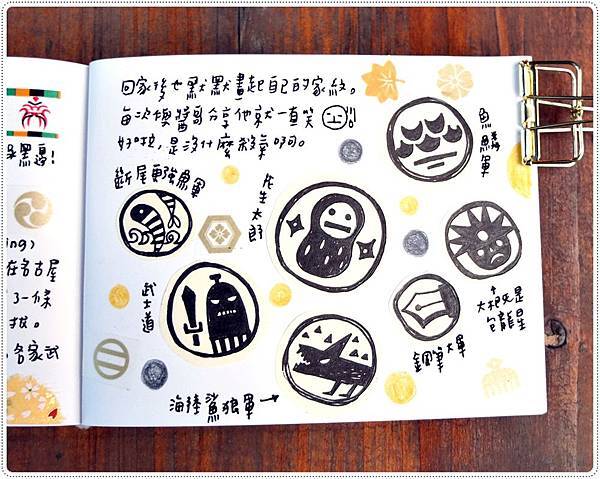 回家後也默默畫起自己的家紋。
每次像醬司分享他就一直笑
好啦，是沒什麼殺氣啊。
魚鱗軍
斷尾彈魚軍
先生太郎
武士道
大把光是
包龍星
鋼筆大軍
海陸鯊狼軍→
黑忍!
ing)
在名古屋
了一條
找。
各家武